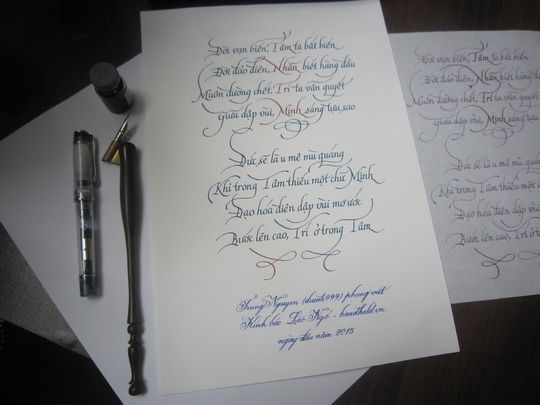 Đời vạn biến, Tâm ta bất biến
Đời đảo điên, Nhẫn biết hàng đầu
Muôn đường chết, Trí ta vẫn quyết
Giữa dập vùi, Minh sáng tựa sao
Đức sẽ là u mê mù quáng
Khi trong Tâm thiếu một chữ Minh
Đạo hóa điên dập vùi mơ ước
Bước lên cao, Trí ở trong Tâm
Trung Nguyen (ducati999) phụng viết
Kính bác Lão Ngố - handheld.vn
ngày đầu năm 2015
Đời vạn biến, Tâm ta bất biến
Đời đảo điên, Nhẫn biết hàng
Muôn đường chết, Trí ta vẫn quyết
Giữa dập vùi, Minh sáng tựa
Đức sẽ là u mê mù quáng
Khi trong Tâm thiếu một chữ
Đạo hóa điên dập vùi mơ
Bước lên cao, Trí ở trong